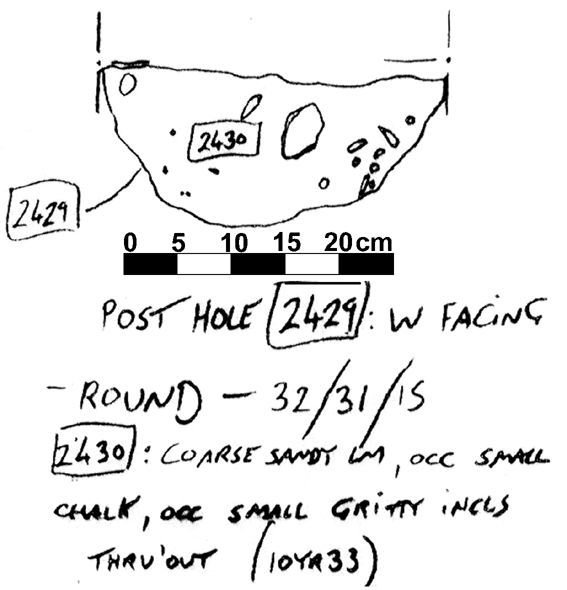 2430
2429
0 5 10 15 20 cm
POST HOLE 2429 : W FACING
- ROUND - 32/31/15
2430 : COARSE SANDY LM, OCC SMALL
CHALK, OCC SMALL GRITTY INCLS
THRU'OUT (10YR33)